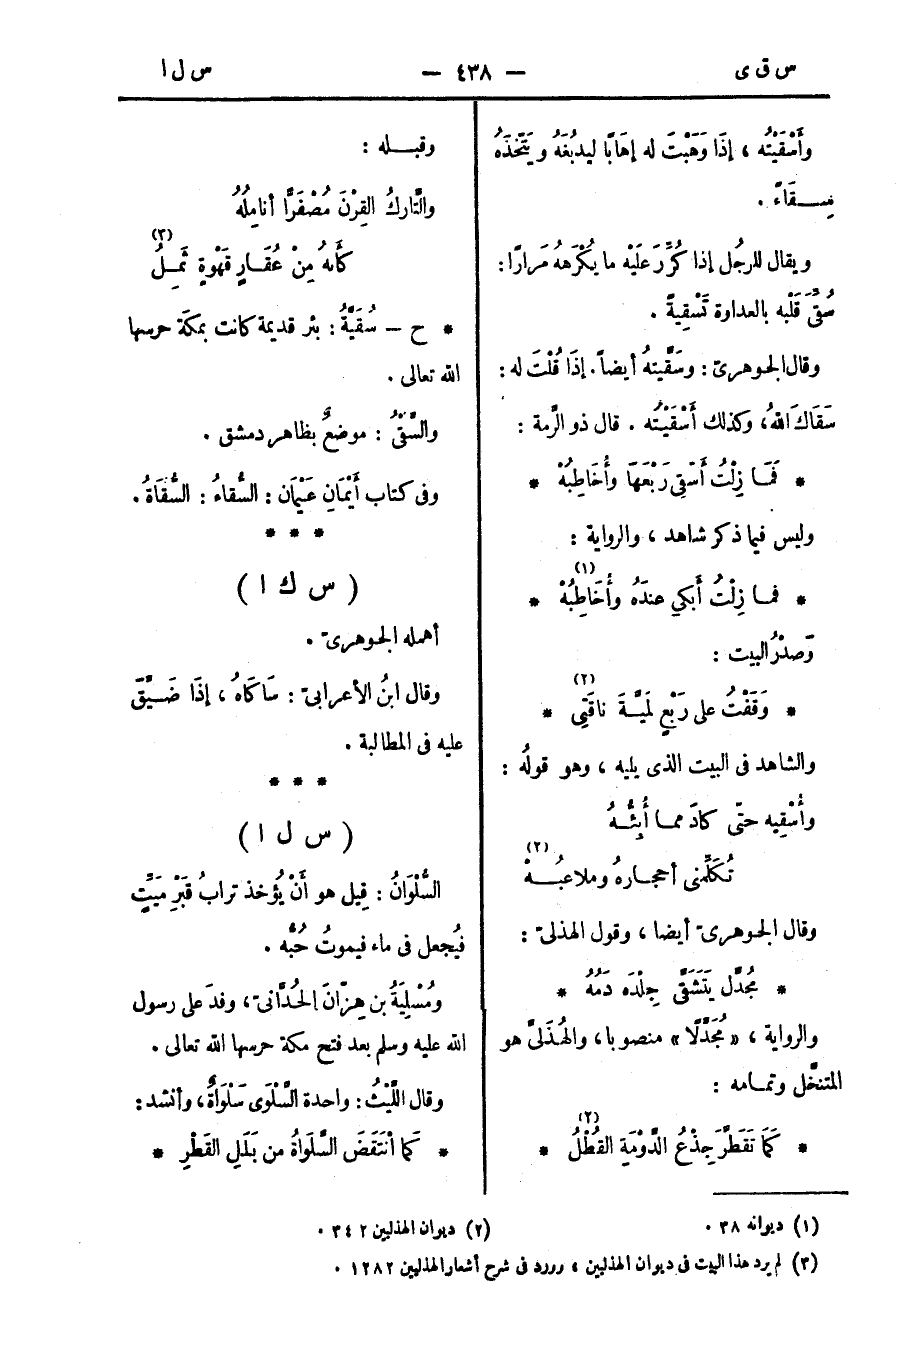 س ق ى — ٤٣٨ — س ل ا
وأَسْقَيْتُه ، إذَا وَهَبْتَ له إهَابًا ليدبُغَهُ ويَتَّخذَهُ
سِقَاءً .
ويقال للرجُل إذا كُرِّرَ عَلَيْه ما يَكْرَههُ مَرارًا :
سُقِّىَ قَلْبه بالعداوة تَسْقِيَةً .
وقال الجوهرىّ : وسَقَّيتهُ أيضاً . إذَا قُلْتَ له :
سَقَاكَ اللهُ، وكذلك أَسْقَيْتُه . قال ذو الرَّمة :
* فَمَا زِلْتُ أَسْقِى رَبْعَهَا وأُخَاطِبُهْ *
وليس فيما ذكر شاهد ، والرواية :
* فما زِلْتُ أَبكي عندَهُ وأُخَاطِبُهْ (١) *
وَصدْرُ البيت :
* وَقَفْتُ على رَبْعٍ لمَيَّةَ ناقَتِي (٢) *
والشاهد فى البيت الذى يليه ، وهو قولُه :
وأُسْقِيه حتّى كادَ مما أُبِثُّهُ
تُكَلِّمنى أحجارهُ وملاعبُهْ (٢)
وقال الجوهرىّ أيضا ، وقول الهذلىّ :
* مُجَدَّل يَتَسَقَّى جِلْدَه دَمُهُ *
والرواية ، « مُجَدَّلًا » منصوبا، والهُذَلىّ هو
المتنخَّل وتمامه :
* كَمَا تَقَطَّرَ جِذْعُ الدَّوْمَةِ القُطْلُ (٢) *
وقبله :
والتَّاركُ القِرْنَ مُصْفَرًّا أنامِلُهُ
كأَنهُ مِنْ عُقَارِ قَهْوةٍ ثَمِلُ (٣)
* ح – سُقَيَّةُ : بئر قديمة كانت بمكة حرسها
الله تعالى .
والسُّقَىُّ : موضعٌ بظاهر دمشق .
وفى كتاب أَيْمَانِ عَيْمَان : السُّقاءُ : السُّقَاةُ .
* * *
( س ك ا )
أهمله الجوهرىّ .
وقال ابنُ الأعرابىّ : سَاكَاهُ ، إذَا ضَيَّقَ
عليه فى المطالبة .
* * *
( س ل ا )
السُّلْوَانُ : قِيل هو أَنْ يُؤخذ ترابُ قَبْرِ مَيِّتٍ
فيُجعل فى ماء فيموتُ حُبُّه .
ومُسْلِيَةُ بن هِزَّانَ الحُدَّانىّ، وفدَ على رسول
الله عليه وسلم بعد فتح مكة حرسها الله تعالى .
وقال اللَّيْثُ : واحدة السَّلْوَى سَلْوَاةٌ، وأنشد :
* كَمَا أنْتَفَضَ السَّلْوَاةُ من بَلَلِ القَطْرِ *
(١) ديوانه ٣٨ .
(٢) ديوان الهذليين ٢ ٣٤ .
(٣) لم يرد هذا البيت فى ديوان الهذليين ، وورد فى شرح أشعار الهذليين ١٢٨٢ .